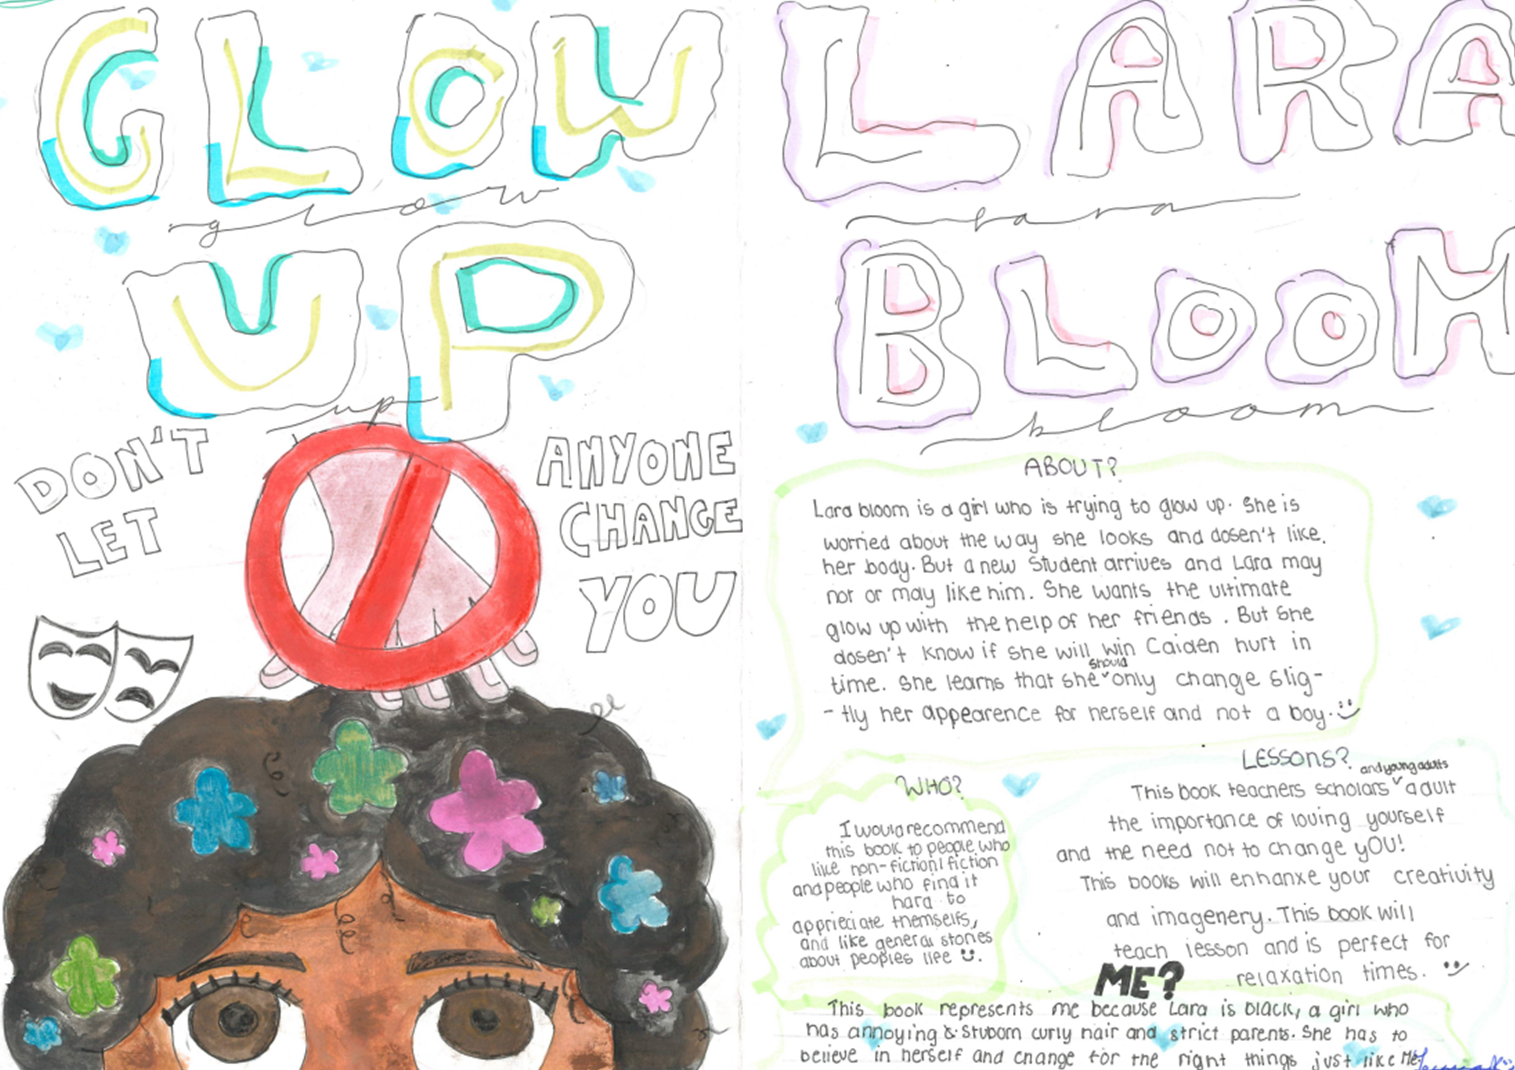 GLOW
glow
UP
up
DON'T
LET
ANYONE
CHANGE
YOU
LARA
lara
BLOOM
bloom
ABOUT?
Lara bloom is a girl who is trying to glow up. She is
worried about the way she looks and dosen't like.
her body. But a new Student arrives and Lara may
not or may like him. She wants the ultimate
glow up with the help of her friends. But she
dosen't know if she will win Caiden hurt in
time. She learns that she should only change slig-
-tly her appearence for herself and not a boy.
WHO?
I would recommend
this book to people who
like non-fiction/fiction
and people who find it
hard to
appriciate themselfs,
and like general stories
about peoples life
LESSONS?
This book teachers scholars and young adults adult
the importance of loving yourself
and the need not to change yOU!
This books will enhanxe your creativity
and imagenery. This book will
teach lesson and is perfect for
relaxation times.
ME?
This book represents me because Lara is black, a girl who
has annoying & Stuborn curly hair and strict parents. She has to
believe in herself and change for the right things just like ME